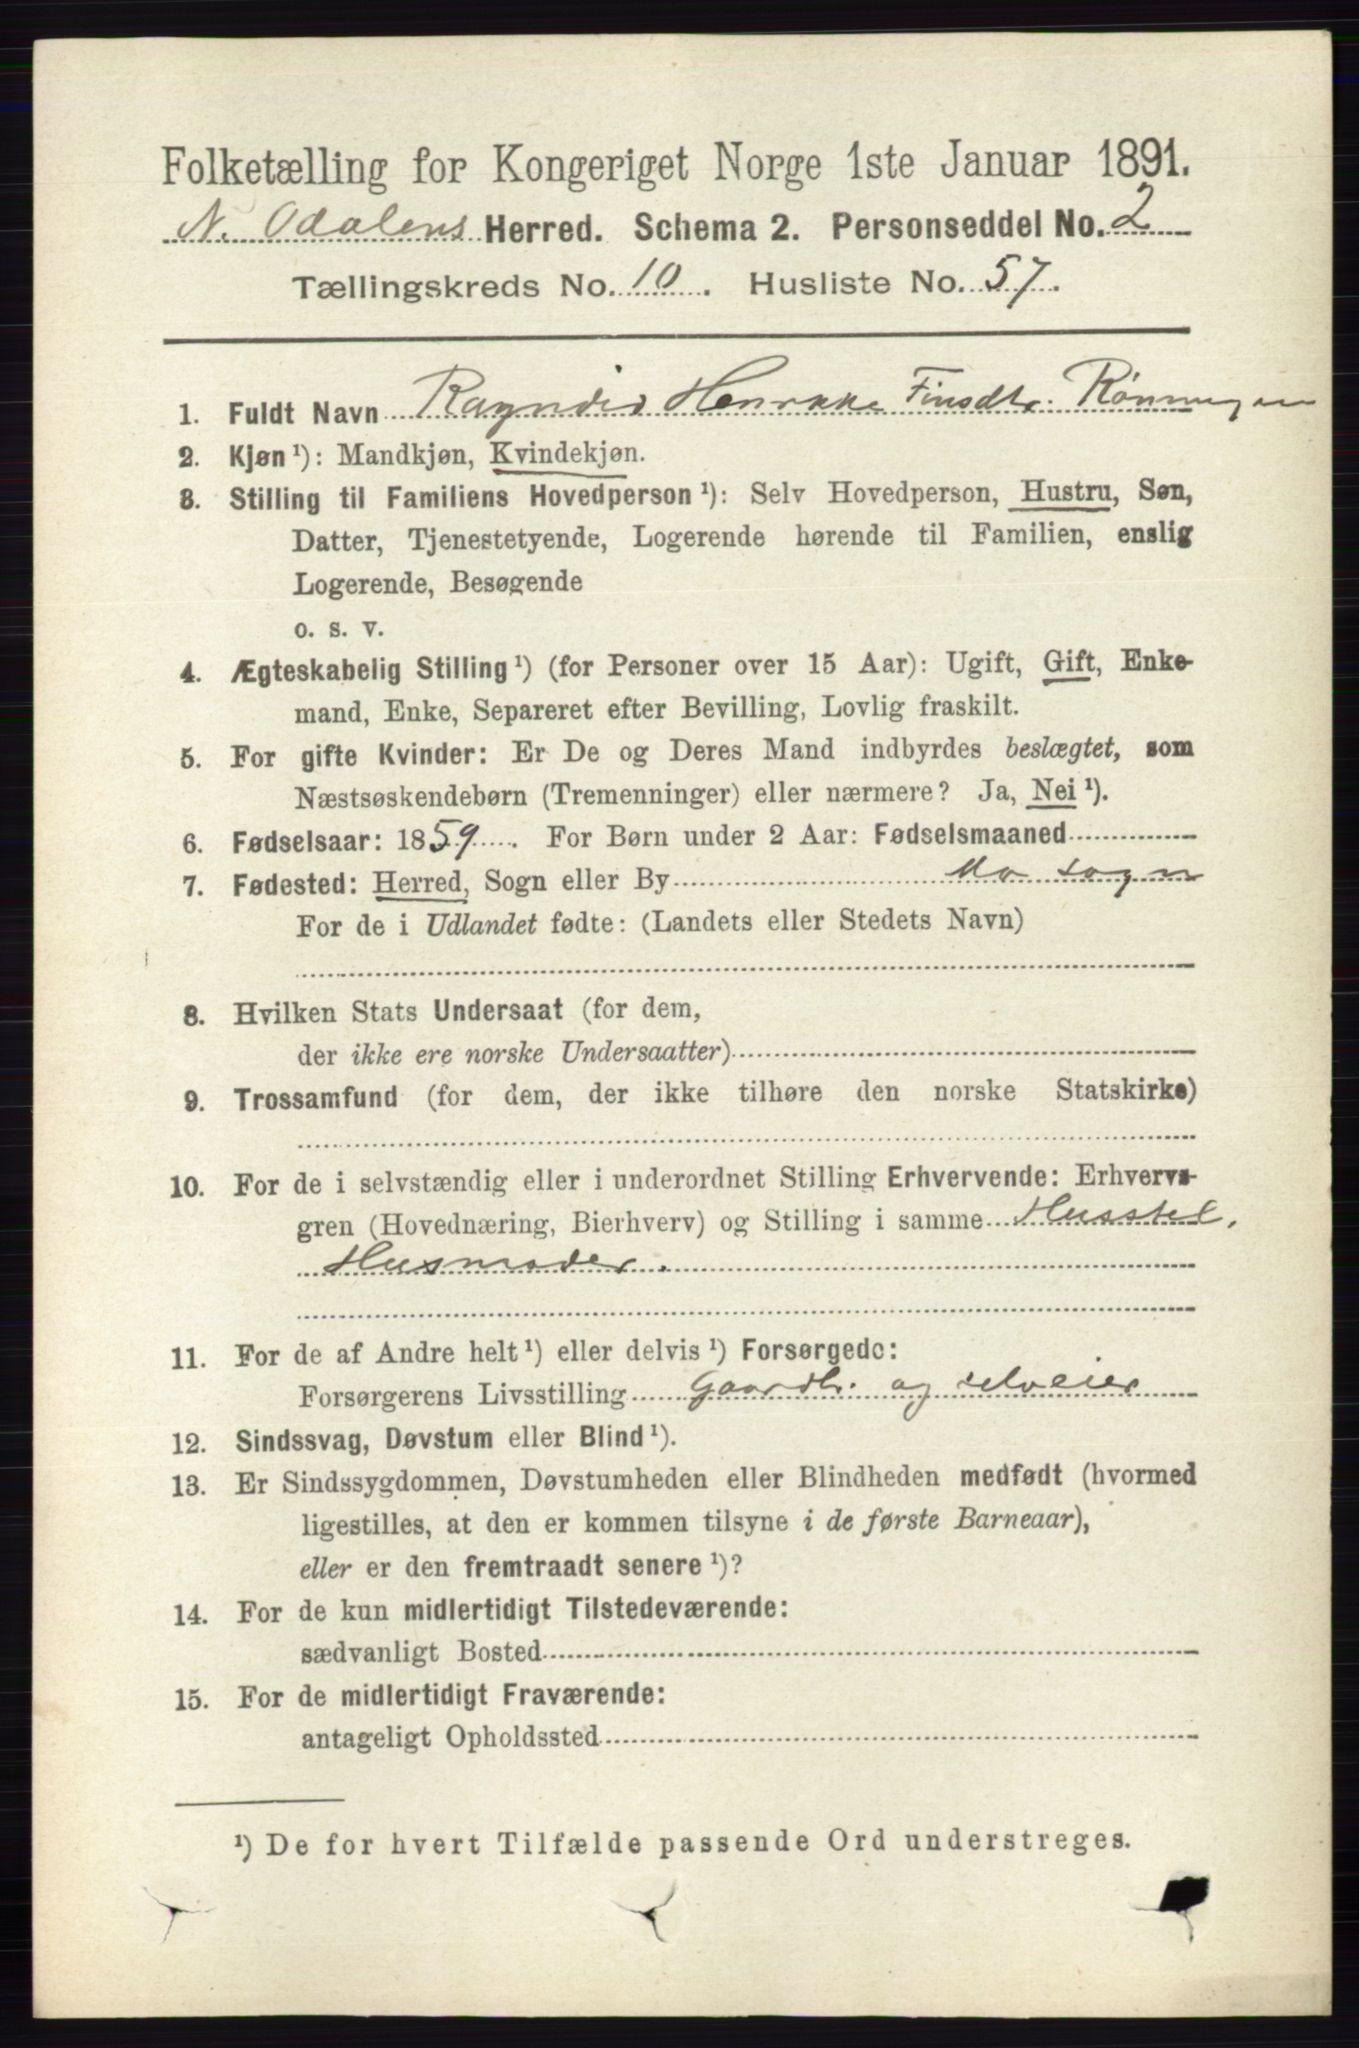 Folketælling for Kongeriget Norge 1ste Januar 1891.
N. Odalens Herred. Schema 2. Personseddel No. 2
Tællingskreds No. 10. Husliste No. 57.
1. Fuldt Navn Ragndid Henrikke Finsdtr. Rönningen
2. Kjøn¹): Mandkjøn, Kvindekjøn.
3. Stilling til Familiens Hovedperson¹): Selv Hovedperson, Hustru, Søn,
Datter, Tjenestetyende, Logerende hørende til Familien, enslig
Logerende, Besøgende
o. s. v.
4. Ægteskabelig Stilling¹) (for Personer over 15 Aar): Ugift, Gift, Enke-
mand, Enke, Separeret efter Bevilling, Lovlig fraskilt.
5. For gifte Kvinder: Er De og Deres Mand indbyrdes beslægtet, som
Næstsøskendebørn (Tremenninger) eller nærmere? Ja, Nei¹).
6. Fødselsaar: 1859. For Børn under 2 Aar: Fødselsmaaned
7. Fødested: Herred, Sogn eller By Mo sogn
For de i Udlandet fødte: (Landets eller Stedets Navn)
8. Hvilken Stats Undersaat (for dem,
der ikke ere norske Undersaatter)
9. Trossamfund (for dem, der ikke tilhøre den norske Statskirke)
10. For de i selvstændig eller i underordnet Stilling Erhvervende: Erhvervs-
gren (Hovednæring, Bierhverv) og Stilling i samme Husstel,
Husmoder.
11. For de af Andre helt¹) eller delvis¹) Forsørgede:
Forsørgerens Livsstilling Gaardbr. og selveier
12. Sindssvag, Døvstum eller Blind¹).
13. Er Sindssygdommen, Døvstumheden eller Blindheden medfødt (hvormed
ligestilles, at den er kommen tilsyne i de første Barneaar),
eller er den fremtraadt senere¹)?
14. For de kun midlertidigt Tilstedeværende:
sædvanligt Bosted
15. For de midlertidigt Fraværende:
antageligt Opholdssted
¹) De for hvert Tilfælde passende Ord understreges.